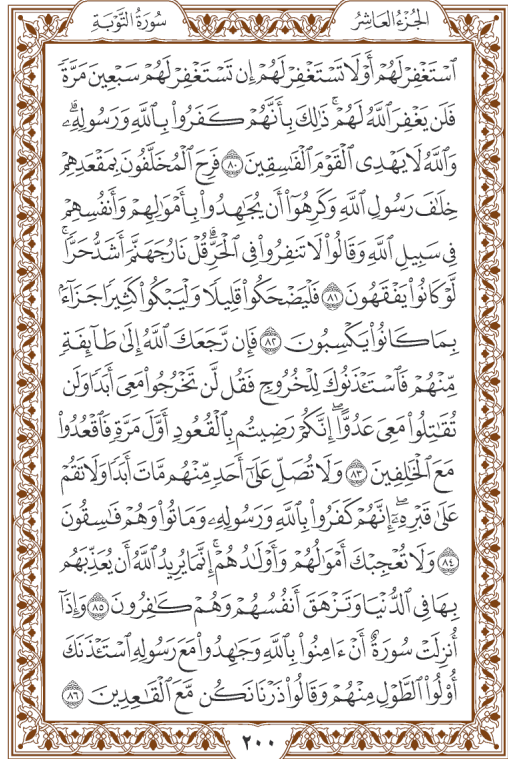 الجُزْءُ العَاشِرُ سُورَةُ التَّوْبَةِ
ٱسْتَغْفِرْ لَهُمْ أَوْ لَا تَسْتَغْفِرْ لَهُمْ إِن تَسْتَغْفِرْ لَهُمْ سَبْعِينَ مَرَّةً
فَلَن يَغْفِرَ ٱللَّهُ لَهُمْ ۚ ذَٰلِكَ بِأَنَّهُمْ كَفَرُوا۟ بِٱللَّهِ وَرَسُولِهِۦ ۗ
وَٱللَّهُ لَا يَهْدِى ٱلْقَوْمَ ٱلْفَٰسِقِينَ ٨٠ فَرِحَ ٱلْمُخَلَّفُونَ بِمَقْعَدِهِمْ
خِلَٰفَ رَسُولِ ٱللَّهِ وَكَرِهُوٓا۟ أَن يُجَٰهِدُوا۟ بِأَمْوَٰلِهِمْ وَأَنفُسِهِمْ
فِى سَبِيلِ ٱللَّهِ وَقَالُوا۟ لَا تَنفِرُوا۟ فِى ٱلْحَرِّ ۗ قُلْ نَارُ جَهَنَّمَ أَشَدُّ حَرًّا ۚ
لَّوْ كَانُوا۟ يَفْقَهُونَ ٨١ فَلْيَضْحَكُوا۟ قَلِيلًا وَلْيَبْكُوا۟ كَثِيرًا جَزَآءًۢ
بِمَا كَانُوا۟ يَكْسِبُونَ ٨٢ فَإِن رَّجَعَكَ ٱللَّهُ إِلَىٰ طَآئِفَةٍ
مِّنْهُمْ فَٱسْتَـْٔذَنُوكَ لِلْخُرُوجِ فَقُل لَّن تَخْرُجُوا۟ مَعِىَ أَبَدًا وَلَن
تُقَٰتِلُوا۟ مَعِىَ عَدُوًّا ۖ إِنَّكُمْ رَضِيتُم بِٱلْقُعُودِ أَوَّلَ مَرَّةٍ فَٱقْعُدُوا۟
مَعَ ٱلْخَٰلِفِينَ ٨٣ وَلَا تُصَلِّ عَلَىٰٓ أَحَدٍ مِّنْهُم مَّاتَ أَبَدًا وَلَا تَقُمْ
عَلَىٰ قَبْرِهِۦٓ ۖ إِنَّهُمْ كَفَرُوا۟ بِٱللَّهِ وَرَسُولِهِۦ وَمَاتُوا۟ وَهُمْ فَٰسِقُونَ
٨٤ وَلَا تُعْجِبْكَ أَمْوَٰلُهُمْ وَأَوْلَٰدُهُمْ ۚ إِنَّمَا يُرِيدُ ٱللَّهُ أَن يُعَذِّبَهُم
بِهَا فِى ٱلدُّنْيَا وَتَزْهَقَ أَنفُسُهُمْ وَهُمْ كَٰفِرُونَ ٨٥ وَإِذَآ
أُنزِلَتْ سُورَةٌ أَنْ ءَامِنُوا۟ بِٱللَّهِ وَجَٰهِدُوا۟ مَعَ رَسُولِهِ ٱسْتَـْٔذَنَكَ
أُو۟لُوا۟ ٱلطَّوْلِ مِنْهُمْ وَقَالُوا۟ ذَرْنَا نَكُن مَّعَ ٱلْقَٰعِدِينَ ٨٦
٢٠٠